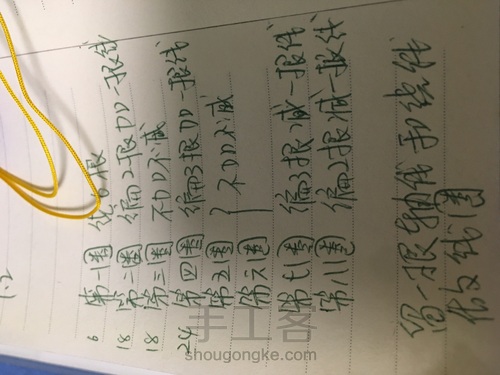 6 第一圈 线6根
18 第二圈 编2根加一根线
18 第三圈 不加不减
24 第四圈 编3根加一根线
第五圈 } 不加不减
第六圈
第七圈 编3根减一根线
第八圈 编2根减一根线
留一根轴线和绕线
线1圈
手工客
shougongke.com